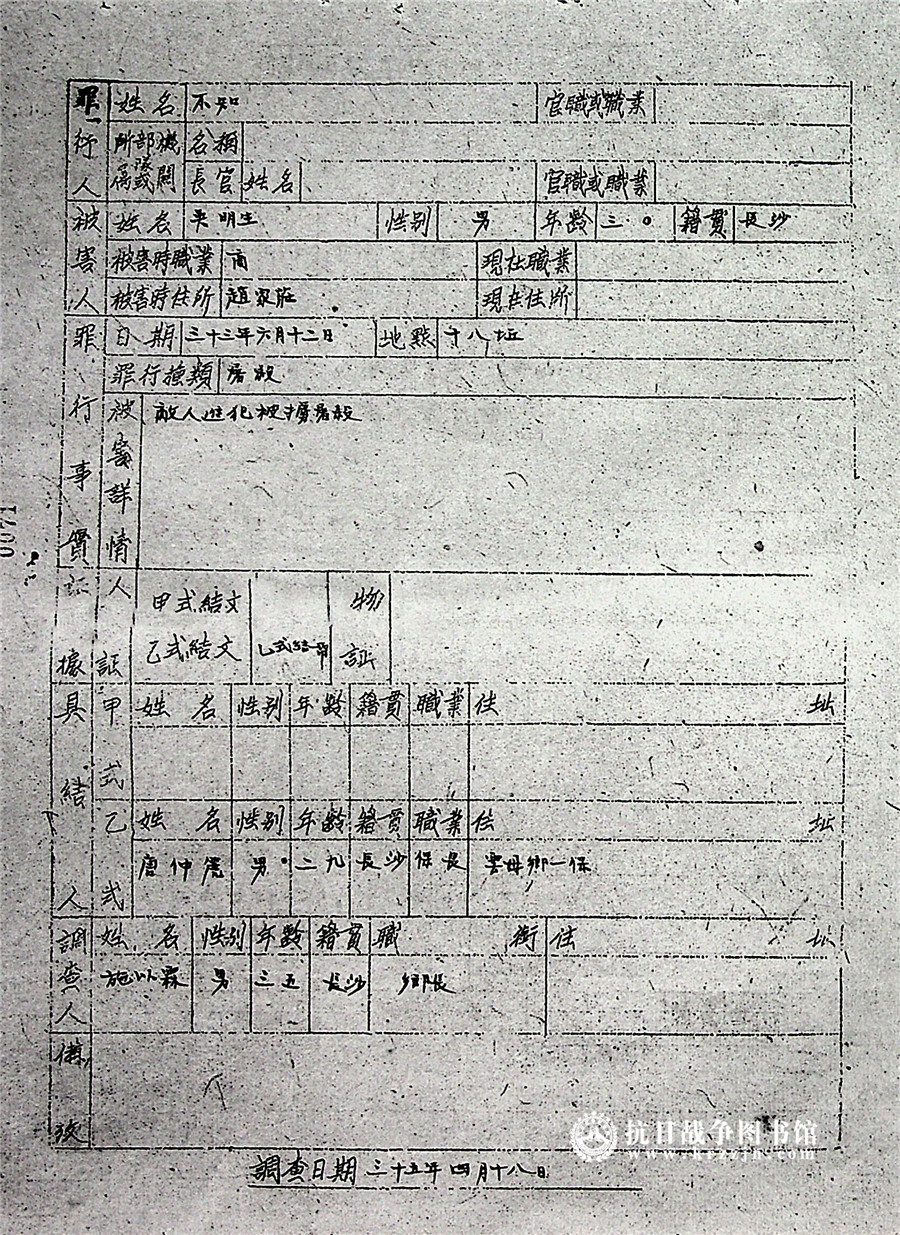 罪行人 姓名 不知 官職或職業
所屬部隊或機關 名稱
長官姓名 官職或職業
被害人 姓名 吳明生 性别 男 年齡 三〇 籍貫 長沙
被害時職業 商 現在職業
被害時住所 趙家莊 現在住所
罪行事實 日期 三十三年六月十二日 地點 十八坵
罪行種類 屠殺
被害詳情 敵人進犯被擄屠殺
証據 人証 甲式結文
乙式結文 乙式結 物証
具結人 甲式 姓名 性别 年齡 籍貫 職業 住址
乙式 姓名 性别 年齡 籍貫 職業 住址
唐仲 男 二九 長沙 保長 雲母鄉一保
調查人 姓名 性别 年齡 籍貫 職銜 住址
施以霖 男 三五 長沙 鄉長
備攷
調查日期 三十五年四月十八日
0071
抗日战争图书馆